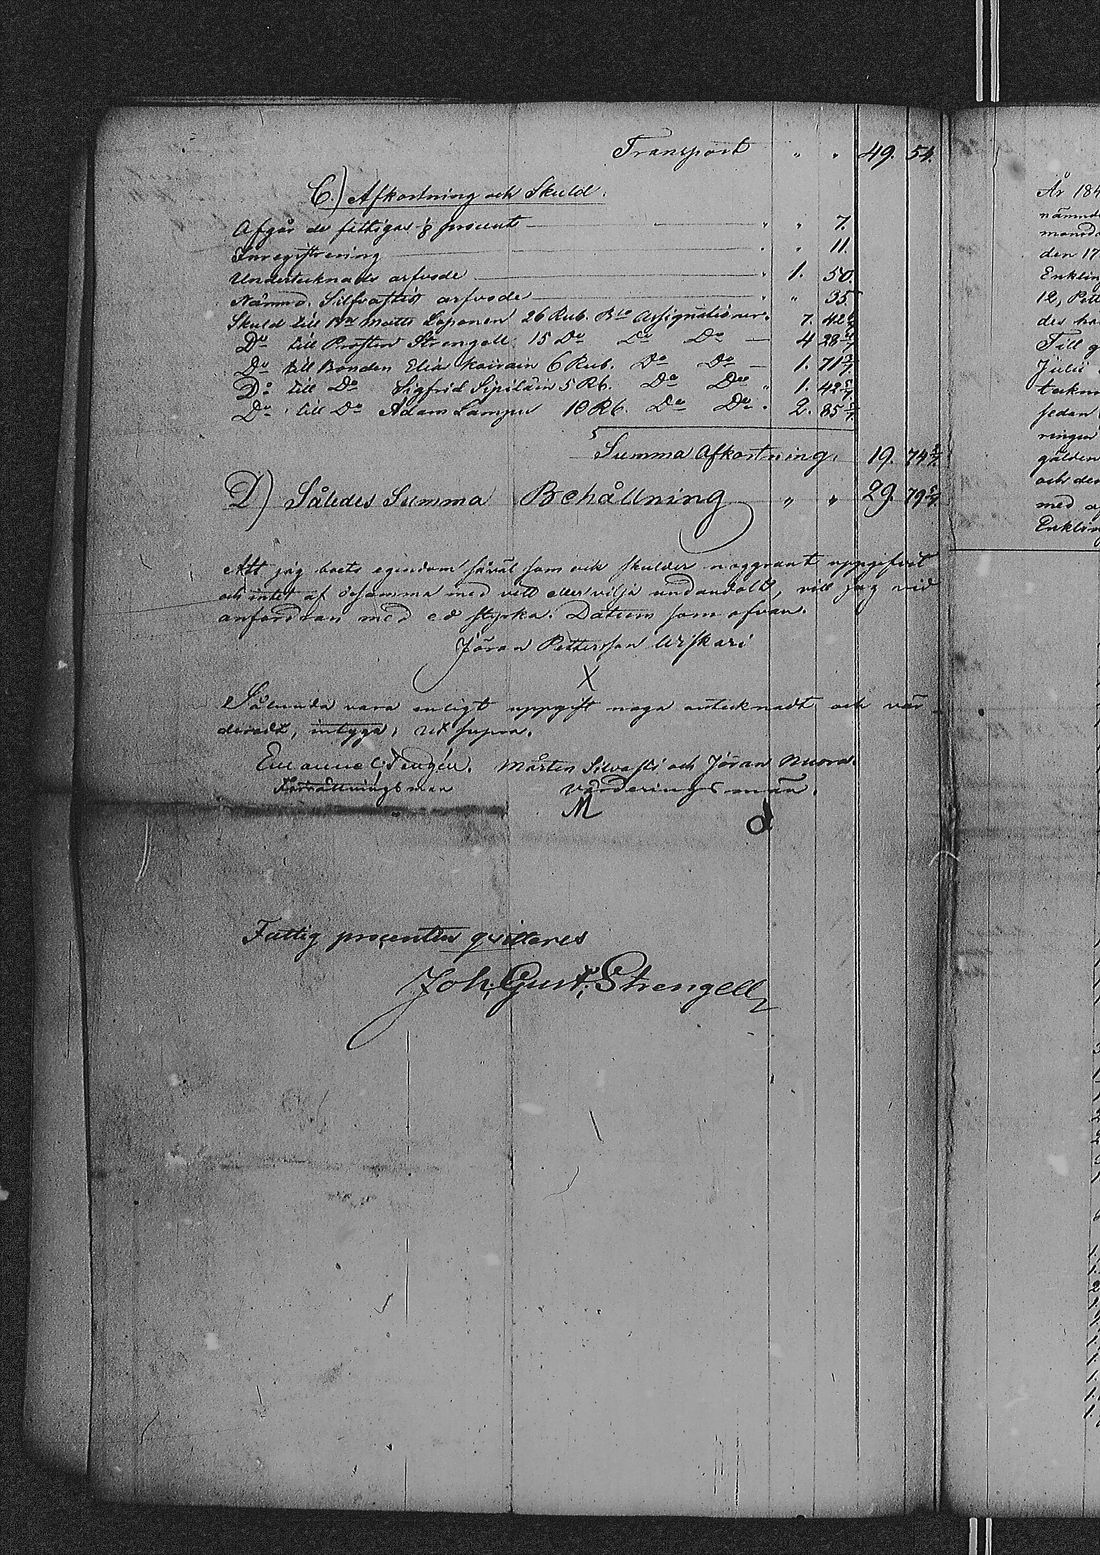 Transport " " 49. 54.
C.) Afkortning och Skuld.
Afgår de fattigas 1/8 procent " " 7.
Inregistrering " " 11.
Undertecknads arfvode " 1. 50.
Nämnd. Silfvastis arfvode " " 35
Skuld till Matts Loponen 26 Rub. Bco Assignationer. 7. 42 6/7
Do till Prosten Strengell 15 Do Do Do 4 28 4/7
Do till Bonden Elia Kairain 6 Rub. Do Do 1. 71 3/7
Do till Do Sigfrid Sipilain 5 Rb. Do Do 1. 42 6/7
Do till Do Adam Lampin 10 Rb. Do Do 2. 85 5/7
Summa Afkortning. 19. 74 2/7
D) Således Summa Behållning " " 29. 79 5/7
Att jag boets egendom såväl som ock skulder noggrant uppgifvit
och intet af detsamma med vett eller vilja undandolt, vill jag vid
anfordran med ed styrka. Datum som ofvan.
Jöran Pettersson
X
Sålunda vara enligt uppgift noga antecknadt och vär-
deradt, intyga, Ut supra.
Emanuel Mårten Silvasti och Jöran
Förrättningsman Värderingsmän.
M d
Fattig procenten qvitteras
Joh. Gust. Strengell
År 184
nämnd
den 17
Enklin
12, Pett
Till
Julii
teckn
sedan
ringen
gälden
och de
med
Enklin